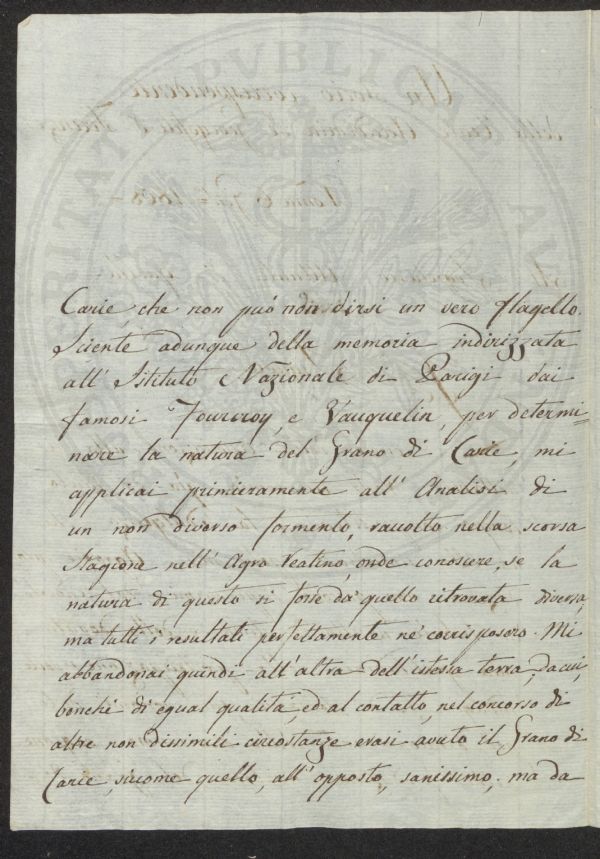 Carie, che non può non dirsi un vero flagello.
Sciente adunque della memoria indirizzata
all' Istituto Nazionale di Parigi dai
famosi Fourcroy, e Vauquelin, per determi=
nare la natura del Grano di Carie, mi
applicai primieramente all' Analisi di
un non diverso formento, raccolto nella scorsa
stagione nell' Agro Veatino, onde conoscere, se la
natura di questo si fosse da quello ritrovata diversa,
ma tutti i resultati perfettamente ne corrisposero. Mi
abbandonai quindi all' altra dell' istessa terra, da cui,
bonchè di egual qualità, ed al contatto, nel concorso di
altre non dissimili circostanze erasi avuto il Grano di
Carie, siccome quello, all' opposto, sanissimo, ma da